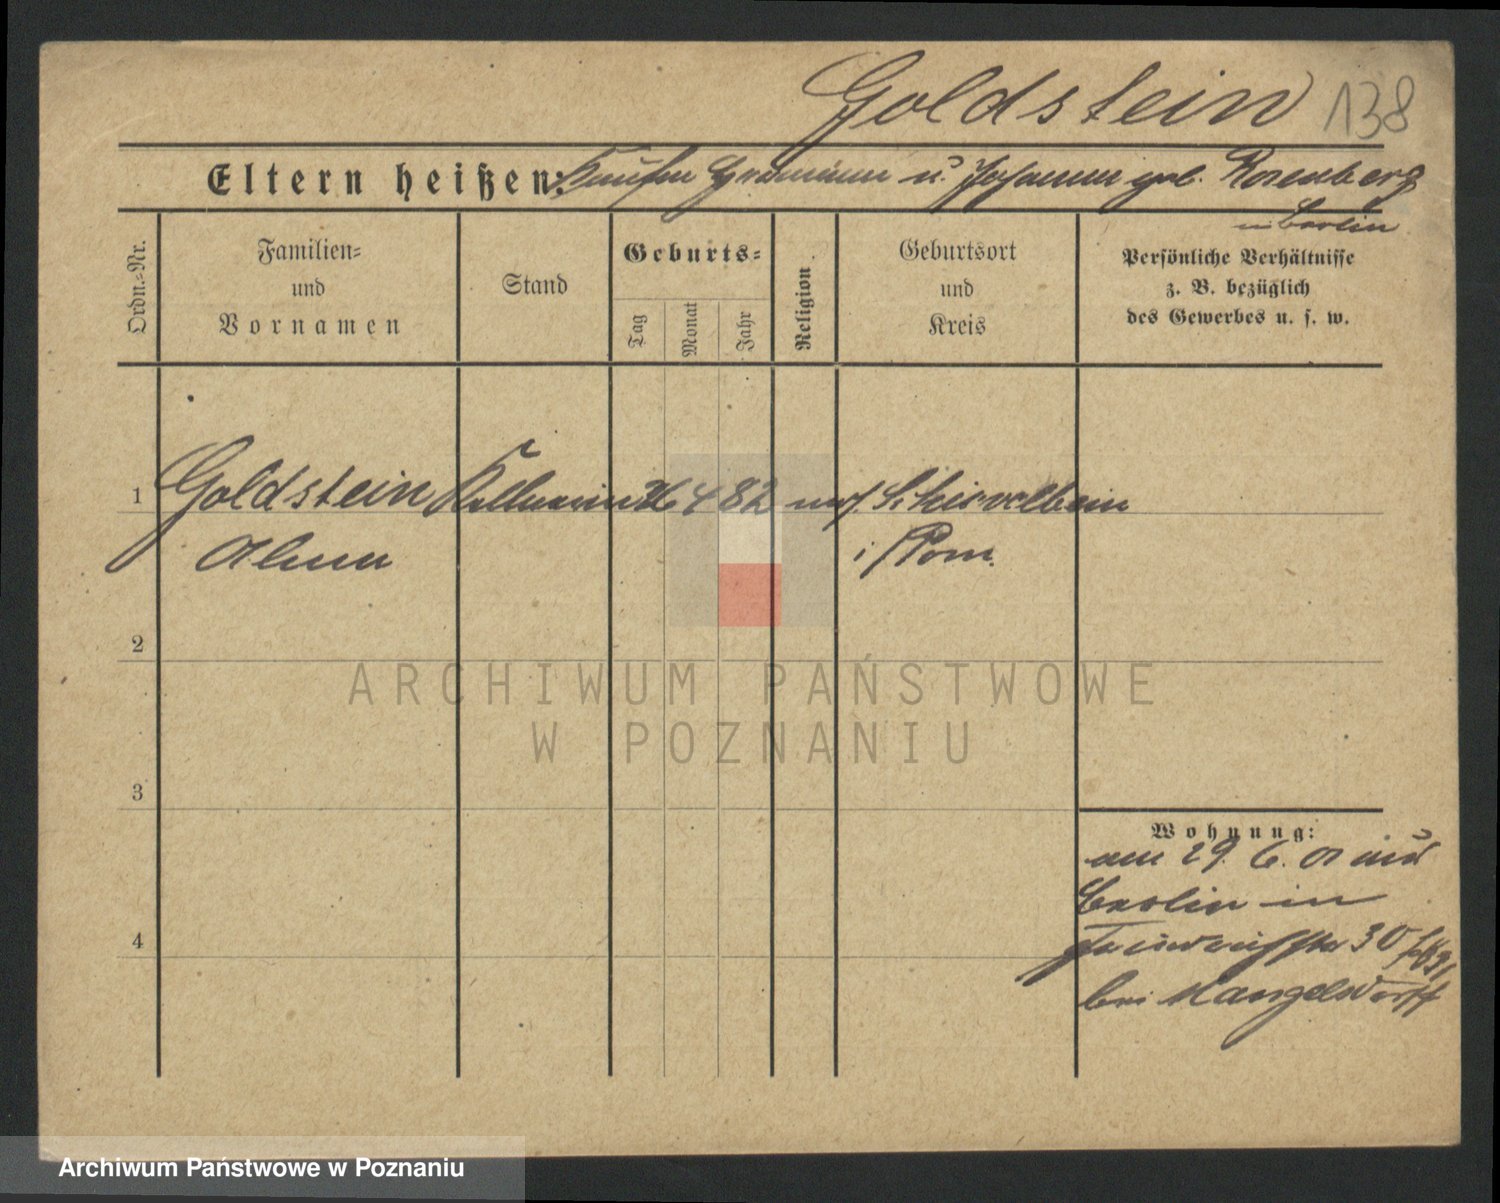 Goldstein 138
Eltern heißen: Kaufm Hermann u. Johanna geb. Rosenberg
in Berlin
Ordn.-Nr.
Familien-
und
Vornamen
Stand
Geburts-
Tag
Monat
Jahr
Religion
Geburtsort
und
Kreis
Persönliche Verhältnisse
z. B. bezüglich
des Gewerbes u. s. w.
1 Goldstein Kellnerin 26 4 82 mos. Schievelbein
Alma i/Pom.
2
3
4
Wohnung:
am 29. 6. 01 aus
Berlin in
30
bei Mangelsdorff
ARCHIWUM PAŃSTWOWE
W POZNANIU
Archiwum Państwowe w Poznaniu